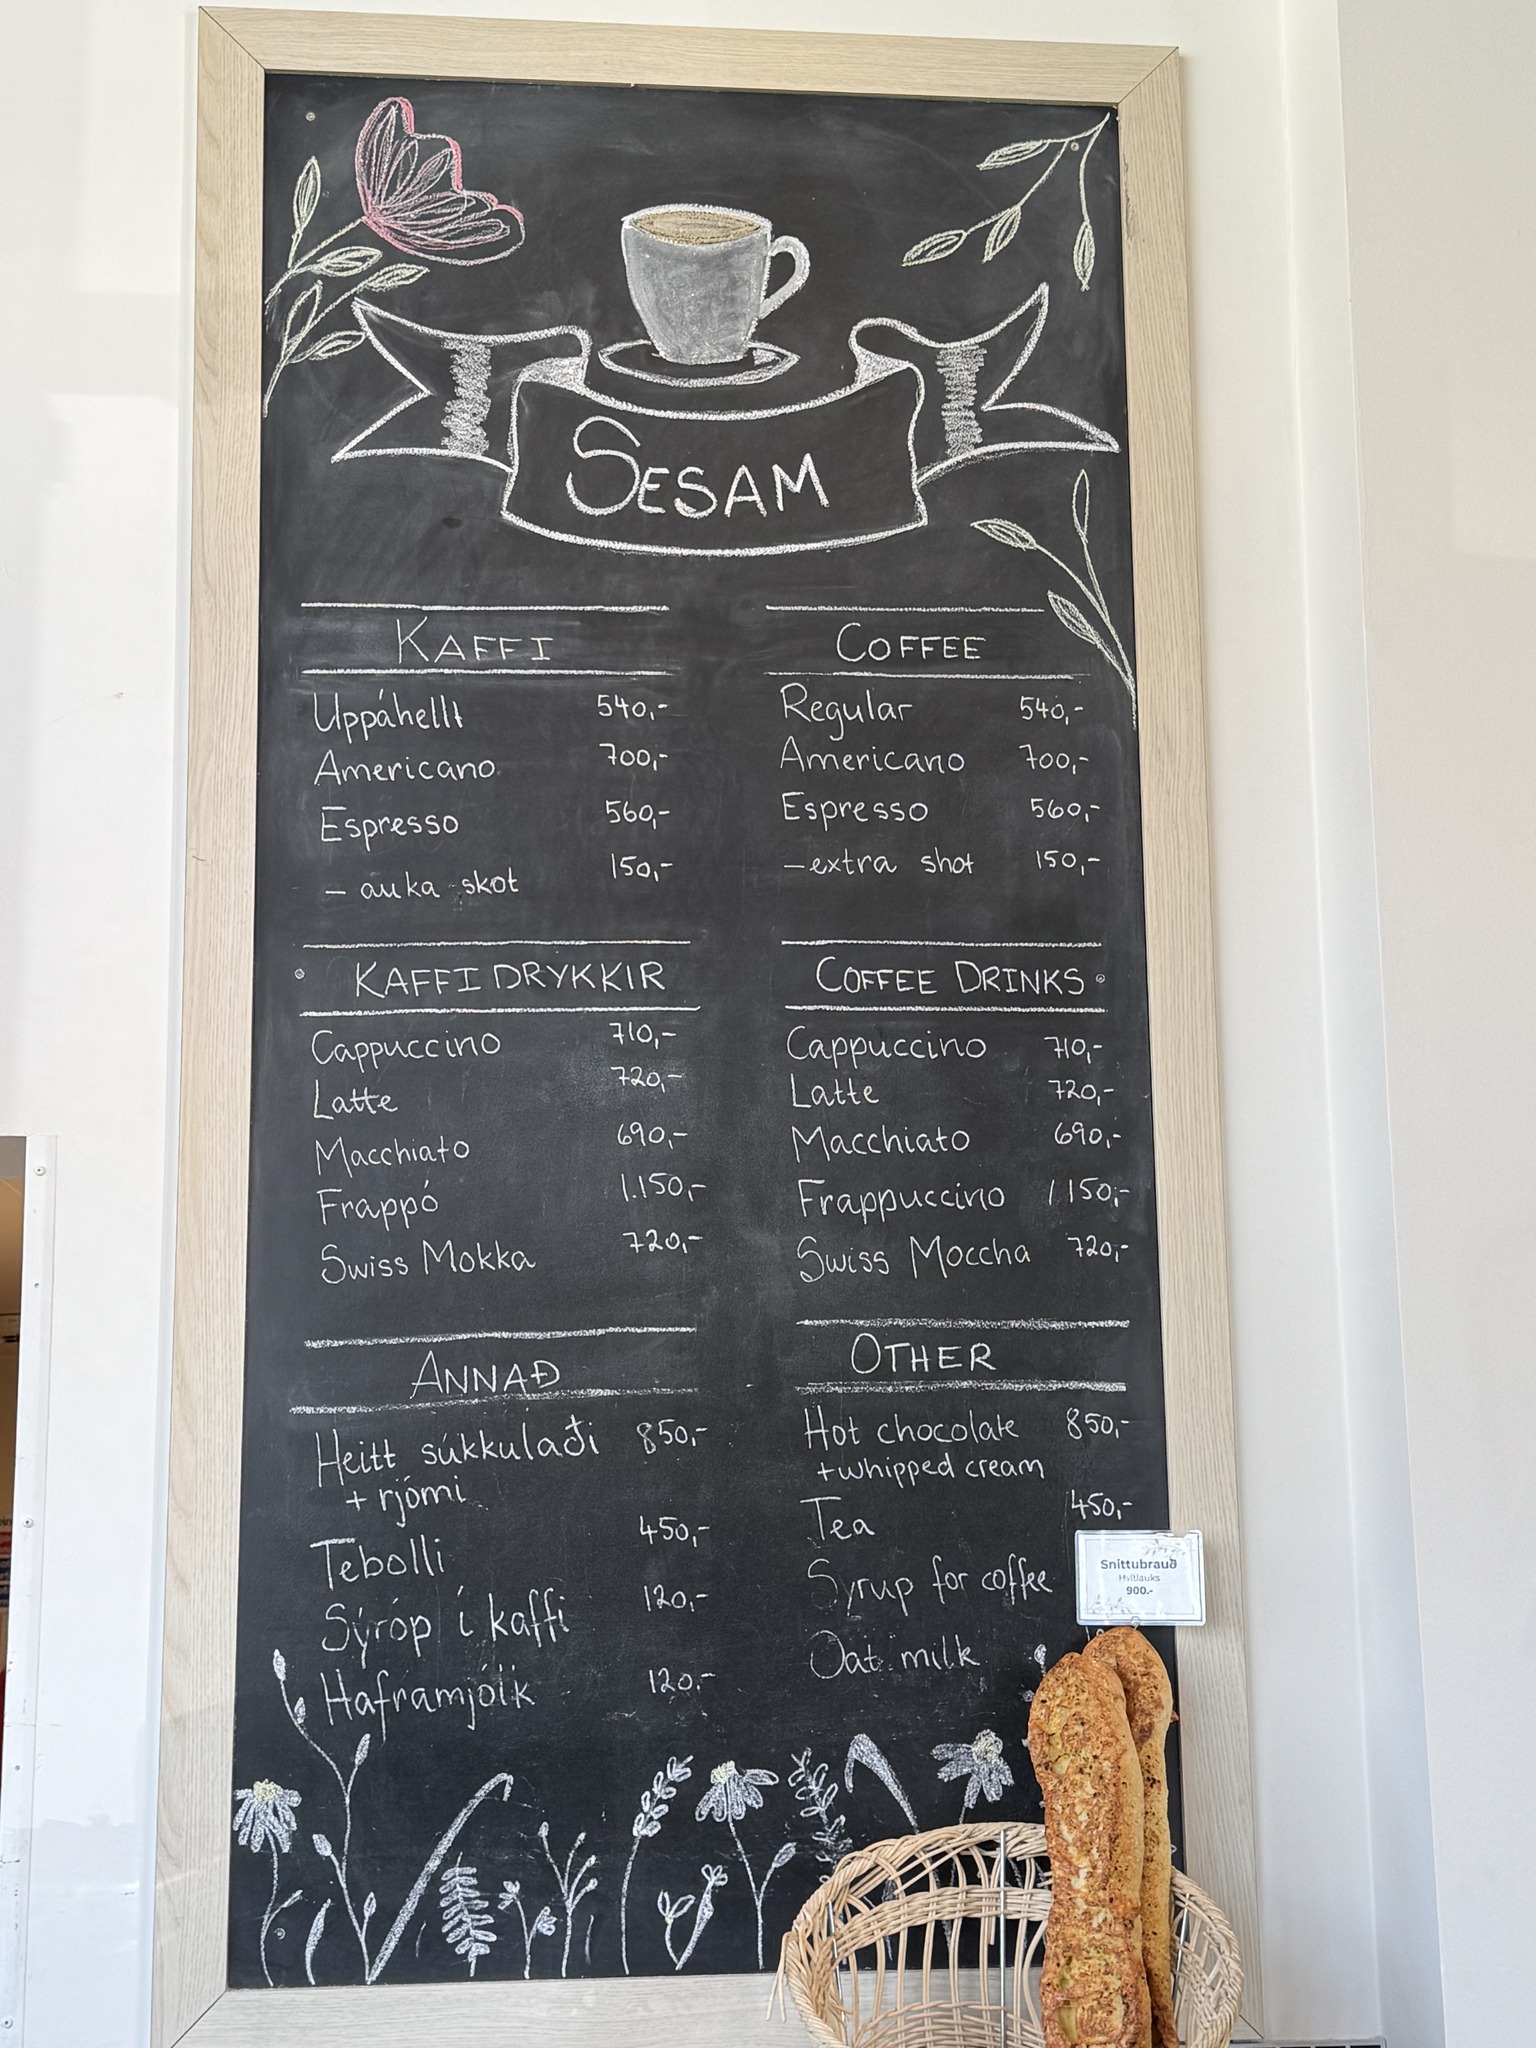 SESAM
KAFFI
Uppáhellt 540,-
Americano 700,-
Espresso 560,-
- auka skot 150,-
KAFFI DRYKKIR
Cappuccino 710,-
Latte 720,-
Macchiato 690,-
Frappó 1.150,-
Swiss Mokka 720,-
ANNAÐ
Heitt súkkulaði 850,-
+ rjómi
Tebolli 450,-
Sýróp í kaffi 120,-
Haframjólk 120,-
COFFEE
Regular 540,-
Americano 700,-
Espresso 560,-
- extra shot 150,-
COFFEE DRINKS
Cappuccino 710,-
Latte 720,-
Macchiato 690,-
Frappuccino 1.150,-
Swiss Moccha 720,-
OTHER
Hot chocolate 850,-
+ whipped cream
Tea 450,-
Syrup for coffee
Oat milk
Snittubrauð
Hvítlauks
900.-